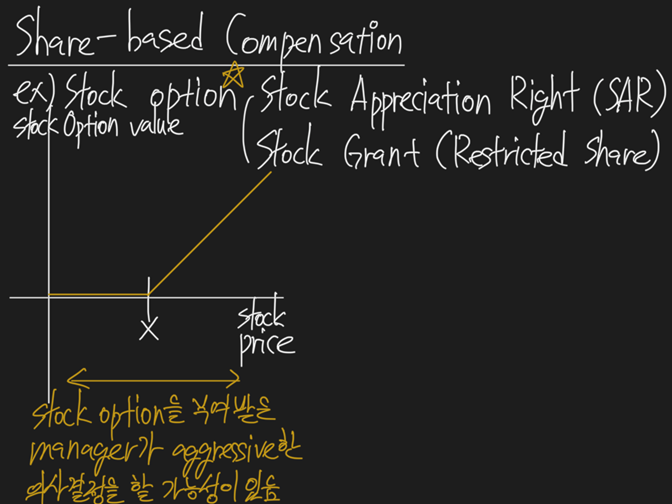 Share-based Compensation
ex) Stock option☆ Stock Appreciation Right (SAR)
Stock Grant (Restricted Share)
stock Option value
X
stock
price
stock option을 부여 받은
manager가 aggressive한
의사결정을 할 가능성이 있음